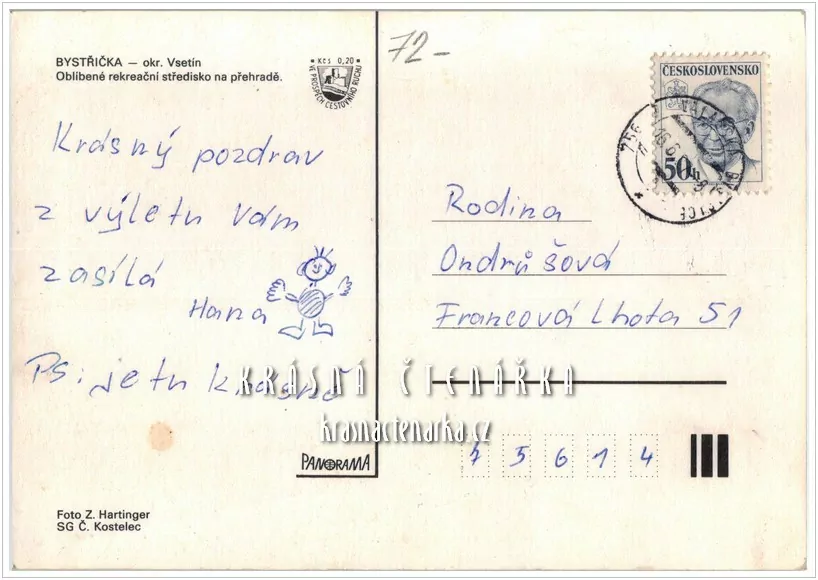 BYSTŘIČKA — okr. Vsetín
Oblíbené rekreační středisko na přehradě.
Kčs 0,20
VE PROSPĚCH CESTOVNÍHO RUCHU
72-
ČESKOSLOVENSKO
50h
Krásný pozdrav
z výletu Vám
zasílá
Hana
PS: je tu krásně
Rodina
Ondrůšová
Francová Lhota 51
75614
KRÁSNÁ ČTENÁŘKA
krasnactenarka.cz
PANORAMA
Foto Z. Hartinger
SG Č. Kostelec